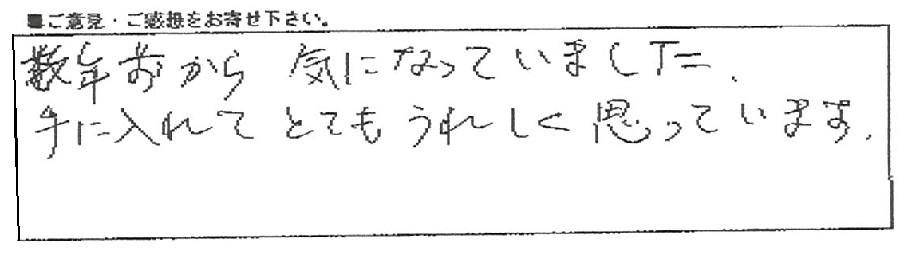 ■ご意見・ご感想をお寄せ下さい。
数年前から 気になっていました。
手に入れて とてもうれしく思っています。